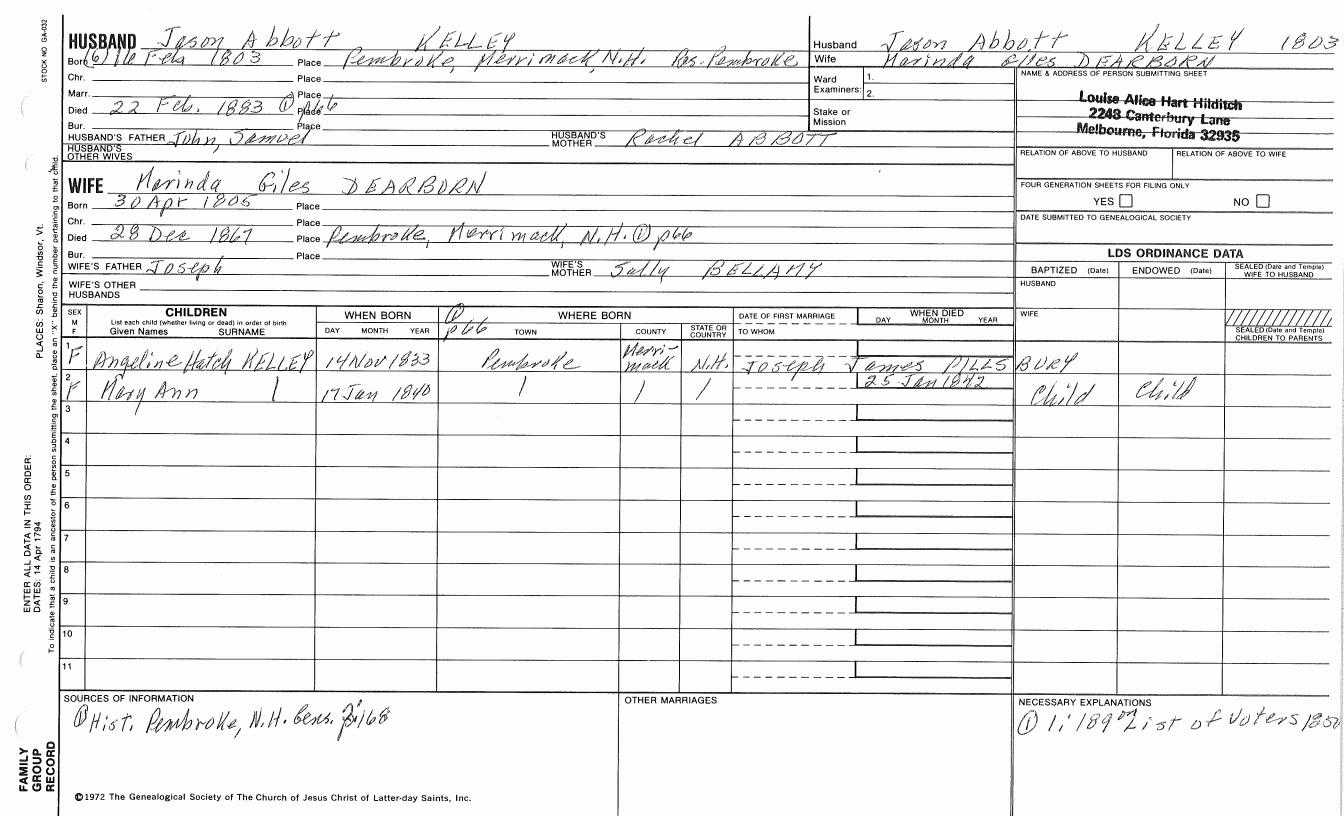 STOCK NO GA-032
HUSBAND Jason Abbott KELLEY
Born (6) 16 Feb 1803 Place Pembroke, Merrimack, N.H. Res. Pembroke
Chr. Place
Marr. Place
Died 22 Feb. 1883 ① p66 Place
Bur. Place
HUSBAND'S FATHER John, Samuel HUSBAND'S MOTHER Rachel ABBOTT
HUSBAND'S OTHER WIVES
WIFE Marinda Giles DEARBORN
Born 30 Apr 1805 Place
Chr. Place
Died 28 Dec 1867 Place Pembroke, Merrimack, N.H. ① p66
Bur. Place
WIFE'S FATHER Joseph WIFE'S MOTHER Sally BELLAMY
WIFE'S OTHER HUSBANDS
Husband Jason Abbott KELLEY 1803
Wife Marinda Giles DEARBORN
Ward Examiners: 1.
2.
Stake or Mission
NAME & ADDRESS OF PERSON SUBMITTING SHEET
Louise Alice Hart Hilditch
2243 Canterbury Lane
Melbourne, Florida 32935
RELATION OF ABOVE TO HUSBAND RELATION OF ABOVE TO WIFE
FOUR GENERATION SHEETS FOR FILING ONLY
YES NO
DATE SUBMITTED TO GENEALOGICAL SOCIETY
LDS ORDINANCE DATA
BAPTIZED (Date) ENDOWED (Date) SEALED (Date and Temple) WIFE TO HUSBAND
HUSBAND
WIFE
SEALED (Date and Temple) CHILDREN TO PARENTS
SEX M F CHILDREN List each child (whether living or dead) in order of birth Given Names SURNAME WHEN BORN DAY MONTH YEAR ① p66 WHERE BORN TOWN COUNTY STATE OR COUNTRY DATE OF FIRST MARRIAGE TO WHOM WHEN DIED DAY MONTH YEAR
1 F Angeline Hatch KELLEY 14 Nov 1833 Pembroke Merri-mack N.H. Joseph James PILLSBURY
2 F Mary Ann | 17 Jan 1840 | | | 25 Jan 1842 Child Child
3
4
5
6
7
8
9
10
11
SOURCES OF INFORMATION
① Hist. Pembroke, N.H. Cens. 168
OTHER MARRIAGES
NECESSARY EXPLANATIONS
① 1:189 on List of Voters 1850
©1972 The Genealogical Society of The Church of Jesus Christ of Latter-day Saints, Inc.
FAMILY GROUP RECORD
ENTER ALL DATA IN THIS ORDER:
DATES: 14 Apr 1794
PLACES: Sharon, Windsor, Vt.
To indicate that a child is an ancestor of the person submitting the sheet, place an "X" behind the number pertaining to that child.